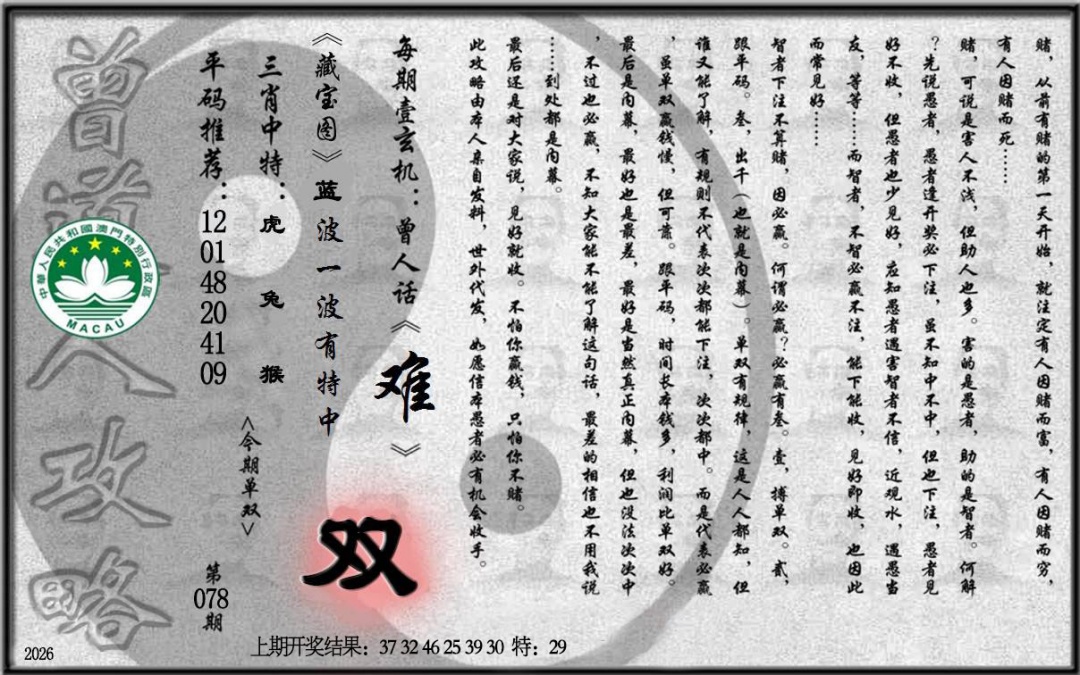 赌，从前有赌的第一天开始，就注定有人因赌而富，有人因赌而穷，
有人因赌而死……
赌，可说是害人不浅，但助人也多。害的是愚者，助的是智者。何解
？先说愚者，愚者逢开奖必下注，虽不知中不中，但也下注，愚者见
好不收，但愚者也少见好，应知愚者遇害智者不信，近观水，遇愚当
友，等等……而智者，不智必赢不注，能下能收，见好即收，也因此
而常见好……
智者下注不算赌，因必赢。何谓必赢？必赢有叁。壹，搏单双。贰，
跟平码。叁，出千（也就是内幕）。单双有规律，这是人人都知，但
谁又能了解，有规则不代表次次都能下注，次次都中。而是代表必赢
，虽单双赢钱慢，但可靠。跟平码，时间长本钱多，利润比单双好。
最后是内幕，最好也是最差，最好是当然真正内幕，但也没法次次中
，不过也必赢，不知大家能不能了解这句话，最差的相信也不用我说
……到处都是内幕。
最后还是对大家说，见好就收。不怕你赢钱，只怕你不赌。
此攻略由本人亲自发料，世外代发，如愿信本愚者必有机会收手。
每期壹玄机：曾人话《难》
《藏宝图》蓝波一波有特中
双
三肖中特：虎兔猴
<今期单双>
平码推荐：12 01 48 20 41 09
第078期
曾道人攻略
中華人民共和國澳門特別行政區
MACAU
2026
上期开奖结果：37 32 46 25 39 30 特：29